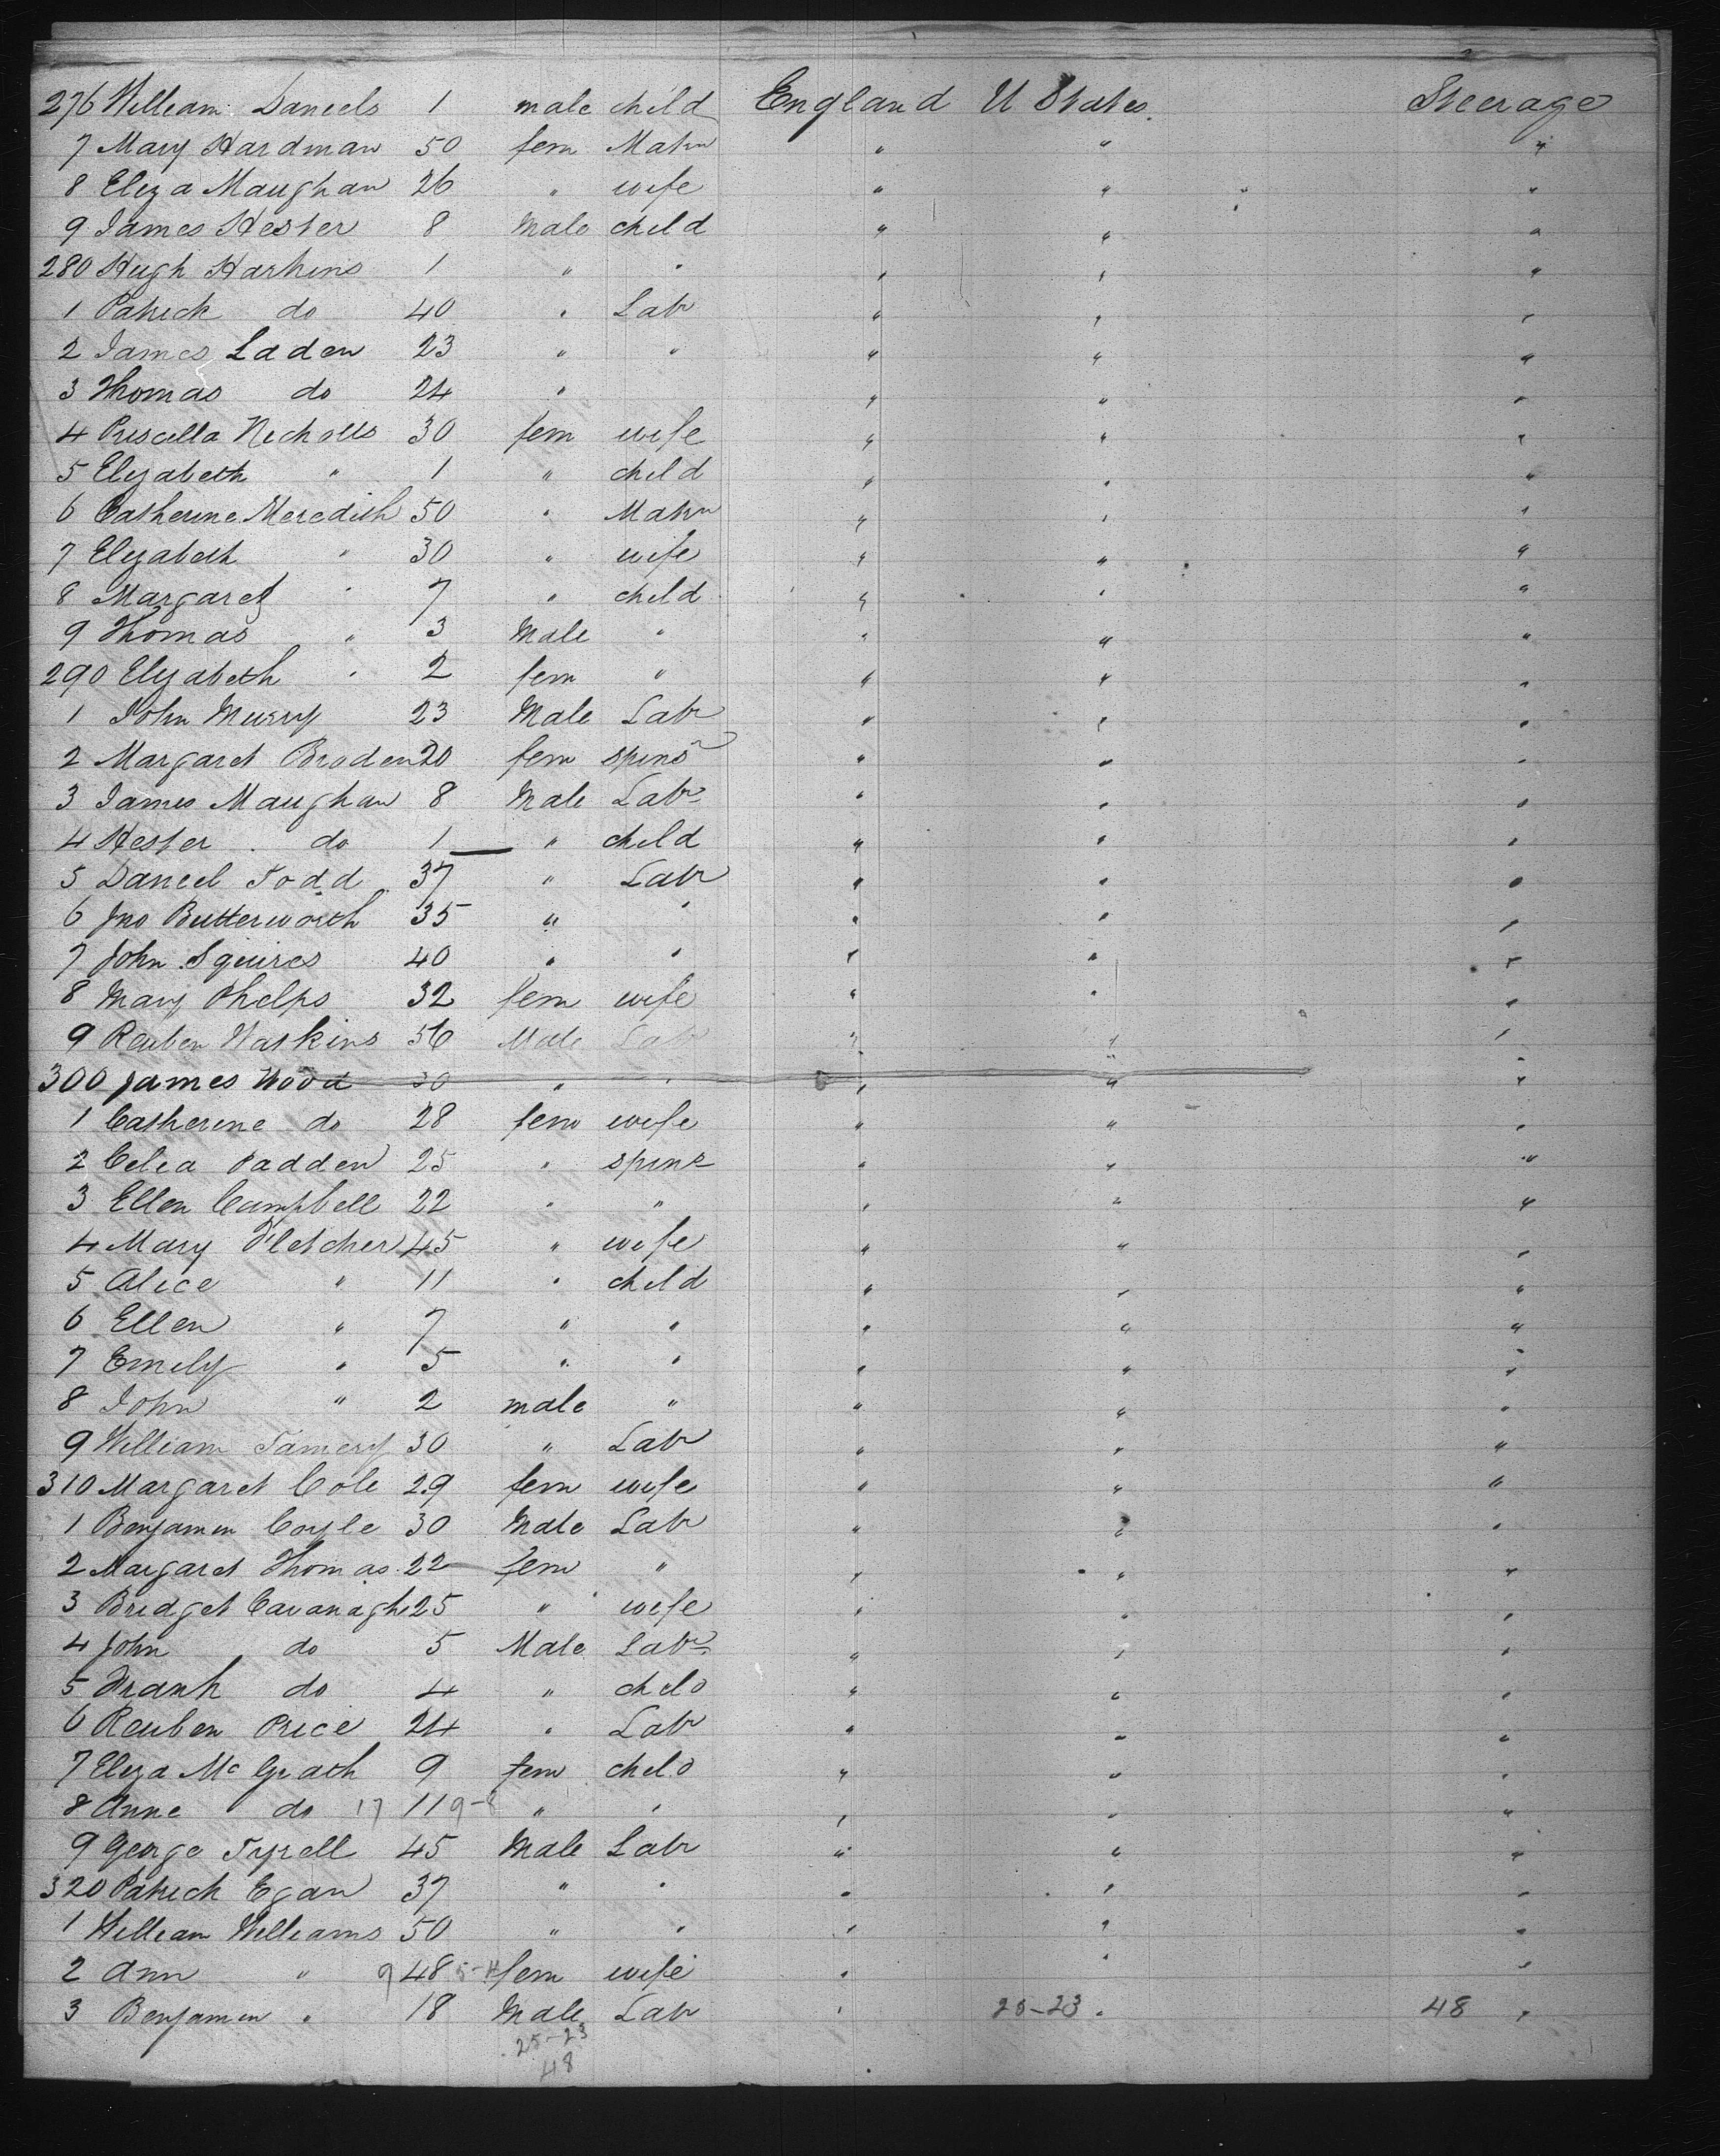 276 William Daniels 1 male child England U States. Steerage
7 Mary Hardman 50 fem Matrn " " "
8 Eliza Maughan 26 " wife " " "
9 James Hester 8 Male child " " "
280 Hugh Harkins 1 " " " " "
1 Patrick do 40 " Labr " " "
2 James Laden 23 " " " " "
3 Thomas do 24 " " " "
4 Priscilla Nicholls 30 fem wife " " "
5 Elizabeth " 1 " child " " "
6 Catherine Meredith 50 " Matrn " " "
7 Elizabeth " 30 " wife " " "
8 Margaret " 7 " child " " "
9 Thomas " 3 Male " " " "
290 Elizabeth " 2 fem " " " "
1 John Murry 23 Male Labr " " "
2 Margaret Broden 20 fem spinsr " " "
3 James Maughan 8 Male Labr " " "
4 Hester do 1 " child " " "
5 Daniel Todd 37 " Labr " " "
6 Jno Butterworth 35 " " " " "
7 John Squires 40 " " " " "
8 Mary Phelps 32 fem wife " " "
9 Reuben Watkins 56 Male Labr " " "
300 James Wood 30 " " " " "
1 Catherine do 28 fem wife " " "
2 Celia Padden 25 " spins " " "
3 Ellen Campbell 22 " " " " "
4 Mary Fletcher 45 " wife " " "
5 Alice " 11 " child " " "
6 Ellen " 7 " " " " "
7 Emily " 5 " " " " "
8 John " 2 male " " " "
9 William 30 " Labr " " "
310 Margaret Cole 29 fem wife " " "
1 Benjamin Coyle 30 Male Labr " " "
2 Margaret Thomas 22 fem " " " "
3 Bridget Cavanagh 25 " wife " " "
4 John do 5 Male Labr " " "
5 Frank do 4 " child " " "
6 Reuben Price 24 " Labr " " "
7 Eliza McGrath 9 fem child " " "
8 Anne do 17 11 9-8 " " " " "
9 George Tyrell 45 Male Labr " " "
320 Patrick Egan 37 " " " " "
1 William Williams 50 " " " " "
2 Ann " 9 48 fem wife " " "
3 Benjamin " 18 Male Labr " 25-23 " 48 "
25-23
48